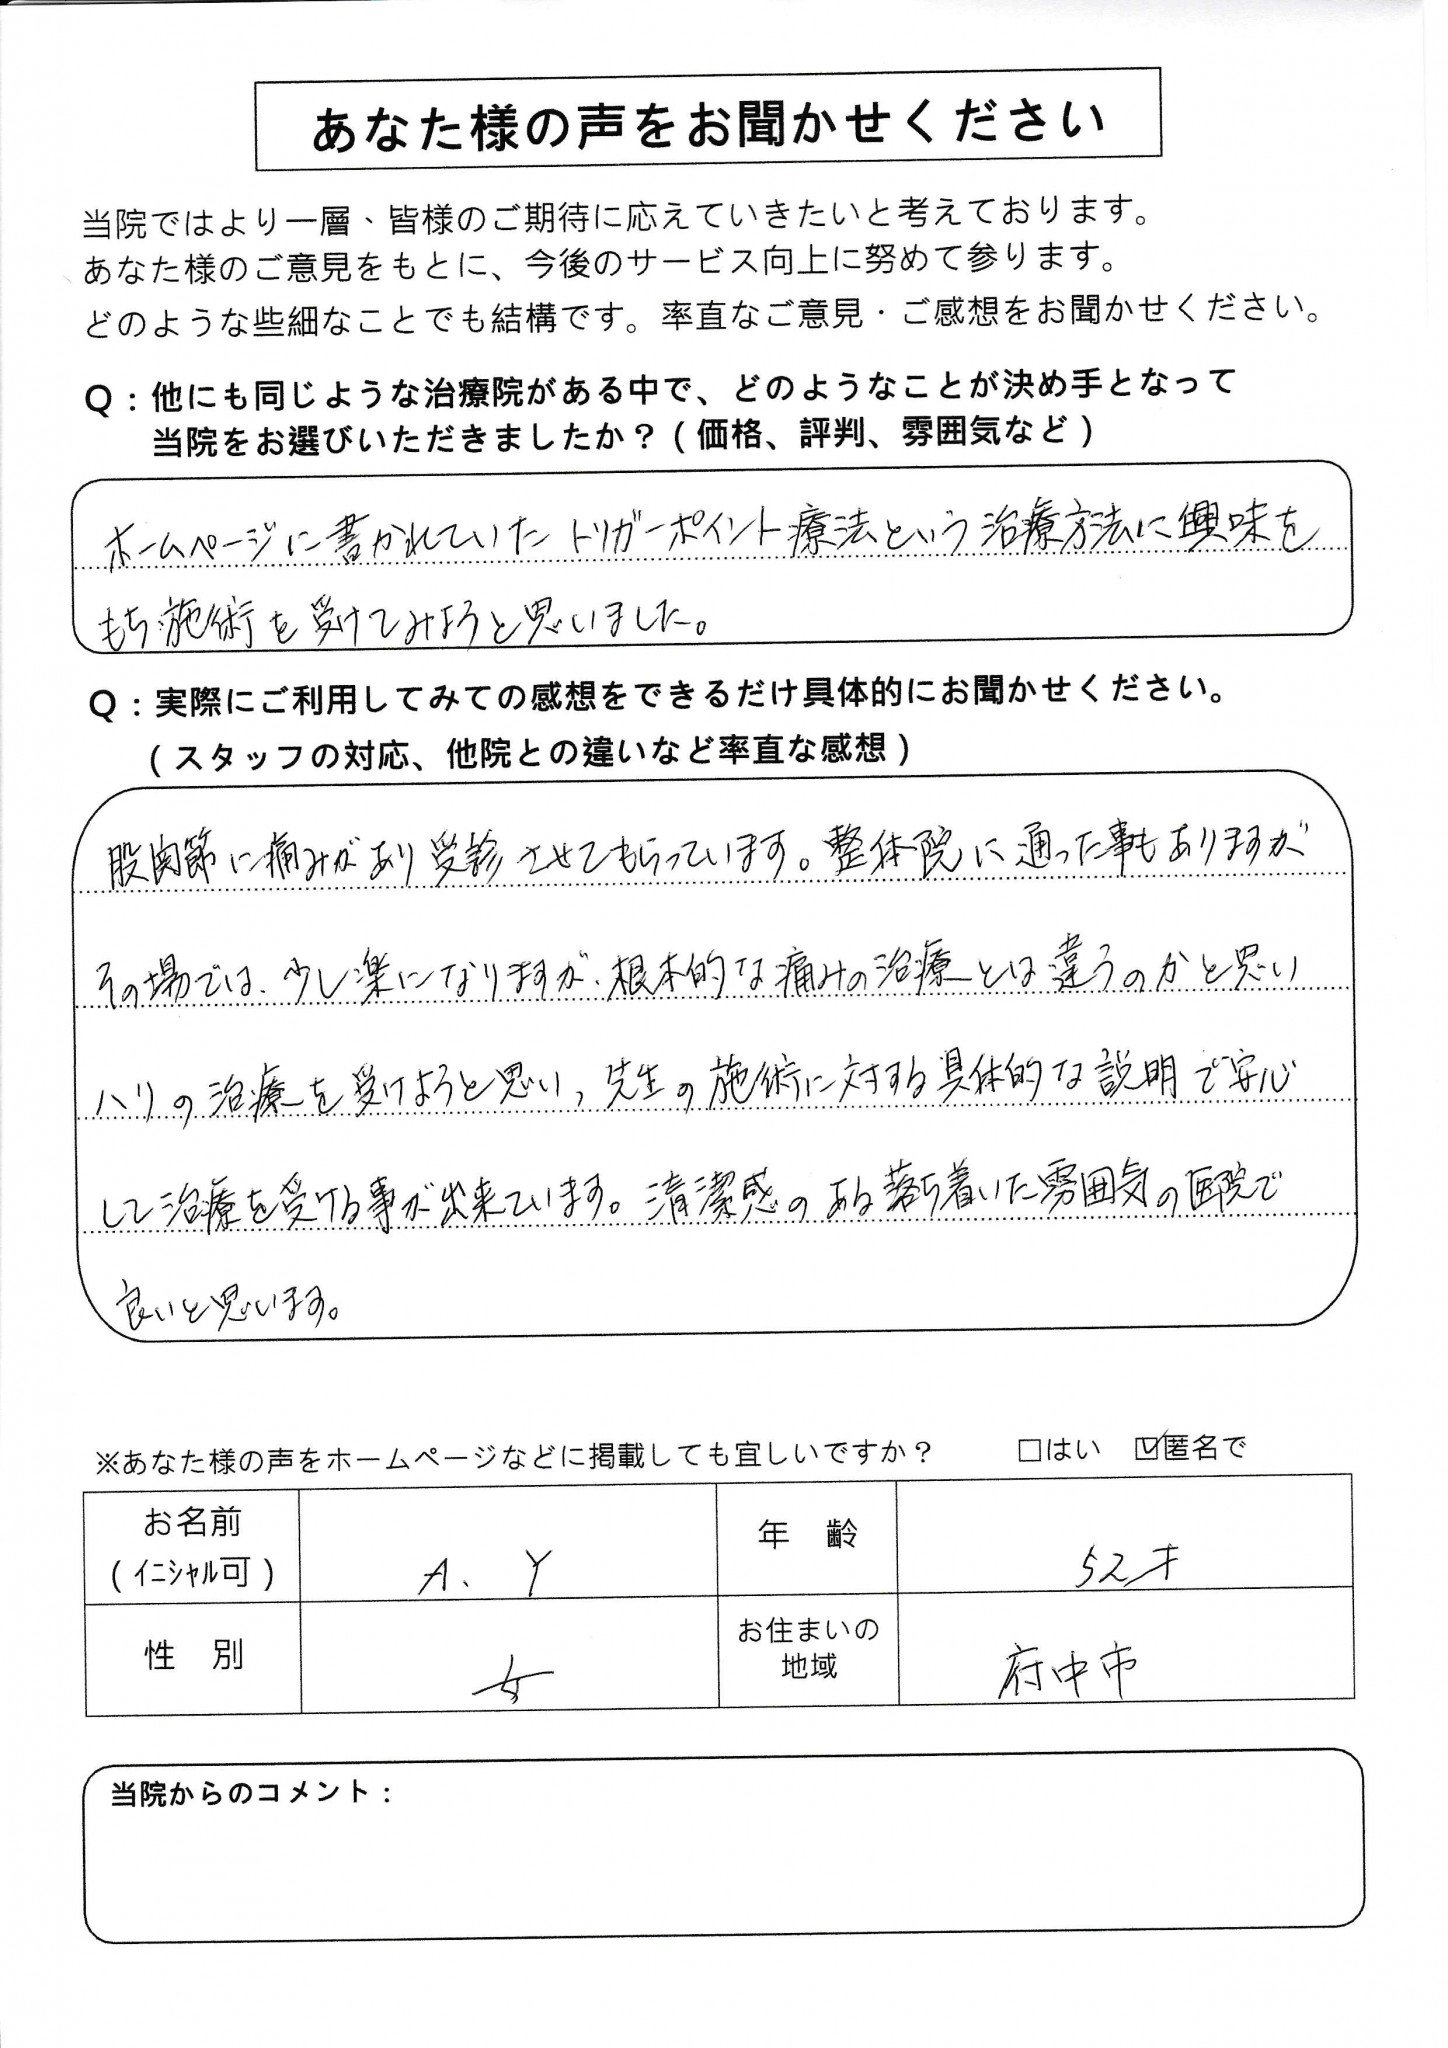 あなた様の声をお聞かせください
当院ではより一層、皆様のご期待に応えていきたいと考えております。
あなた様のご意見をもとに、今後のサービス向上に努めて参ります。
どのような些細なことでも結構です。率直なご意見・ご感想をお聞かせください。
Q：他にも同じような治療院がある中で、どのようなことが決め手となって
当院をお選びいただきましたか？（価格、評判、雰囲気など）
ホームページに書かれていたトリガーポイント療法という治療方法に興味を
もち施術を受けてみようと思いました。
Q：実際にご利用してみての感想をできるだけ具体的にお聞かせください。
（スタッフの対応、他院との違いなど率直な感想）
股関節に痛みがあり受診させてもらっています。整体院に通った事もありますが
その場では、少し楽になりますが、根本的な痛みの治療とは違うのかと思い
ハリの治療を受けようと思い、先生の施術に対する具体的な説明で安心
して治療を受ける事が出来ています。清潔感のある落ち着いた雰囲気の医院で
良いと思います。
※あなた様の声をホームページなどに掲載しても宜しいですか？ □はい ☑匿名で
お名前 年 齢
（イニシャル可） A、Y 52才
性 別 女 お住まいの 府中市
地域
当院からのコメント：